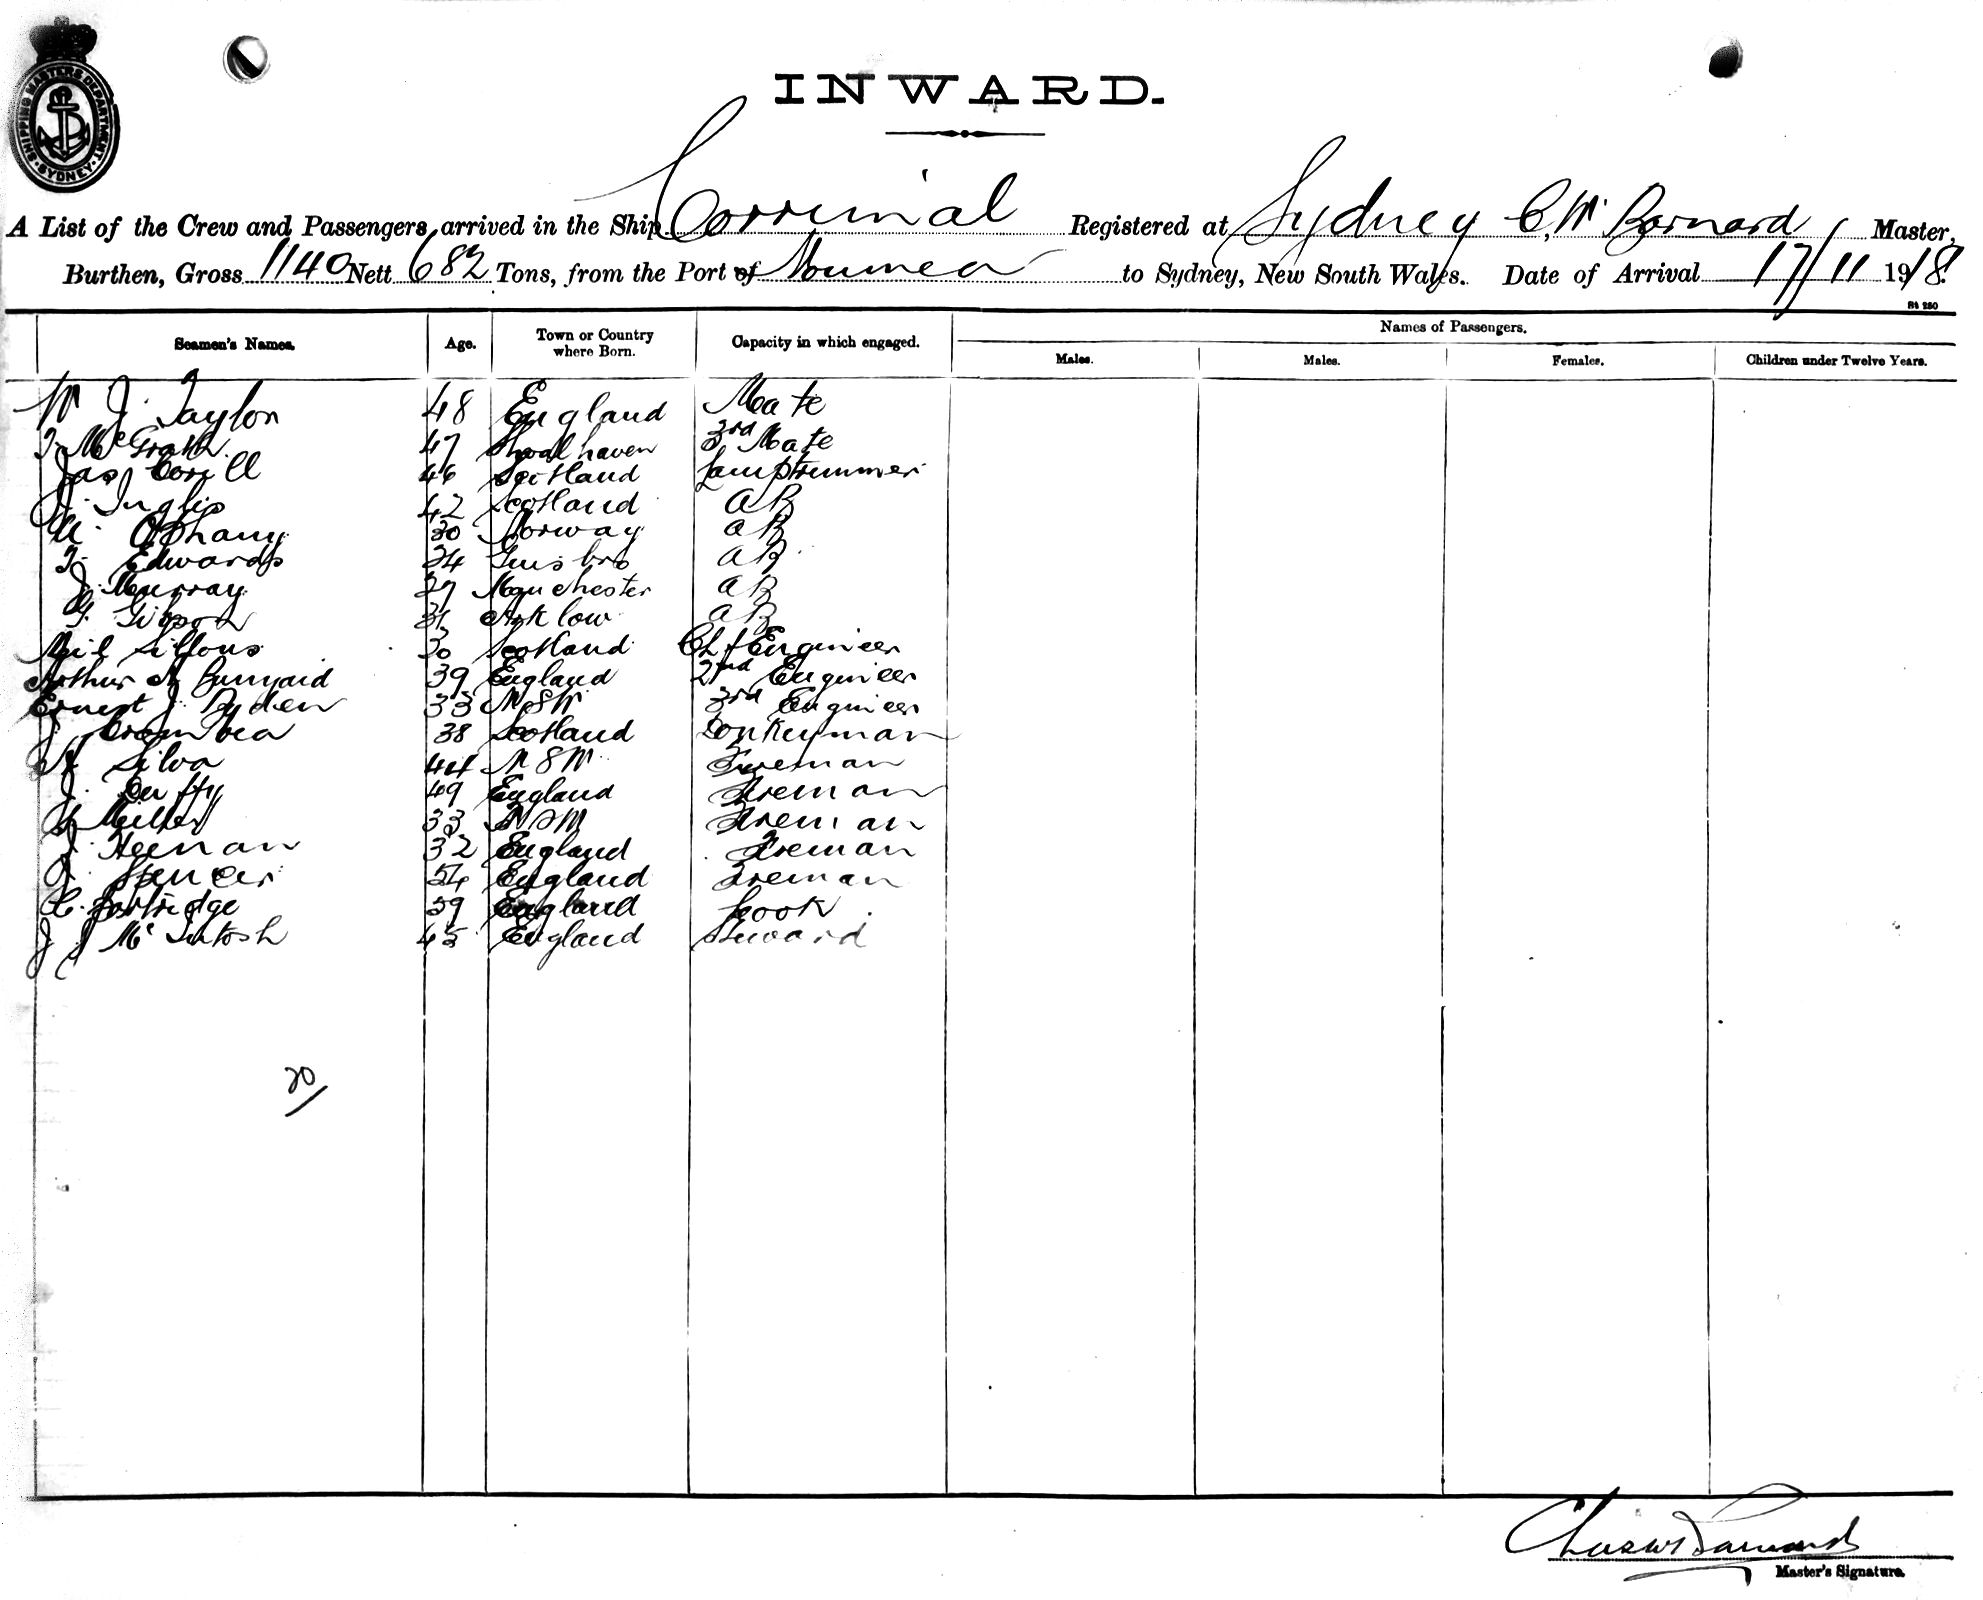 SHIPPING MASTERS DEPARTMENT SYDNEY
INWARD.
A List of the Crew and Passengers arrived in the Ship Corrimal Registered at Sydney C. W. Barnard Master,
Burthen, Gross 1140 Nett 682 Tons, from the Port of Noumea to Sydney, New South Wales. Date of Arrival 17/11 1918
Rt 250
Seamen's Names. Age. Town or Country where Born. Capacity in which engaged. Names of Passengers.
Males. Males. Females. Children under Twelve Years.
W J Taylor 48 England Mate
T. McGrath 47 Shoalhaven 3rd Mate
Jas 46 Scotland Lamptrimmer
J. Inglis 42 Scotland AB
30 Norway AB
T. Edwards 24 AB
J. Murray 27 Manchester AB
G. Gibson 31 Arklow AB
Neil 30 Scotland Chf Engineer
Arthur A Bunyard 39 England 2nd Engineer
Ernest J. Ryden 33 NSW 3rd Engineer
J 38 Scotland Donkeyman
A Silva 44 NSW Fireman
J. Duffy 49 England Fireman
Miller 33 NSW Fireman
J. Heenan 32 England Fireman
J. Spencer 54 England Fireman
C. Partridge 59 England Cook
J J McIntosh 45 England Steward
20/
Chas W Barnard
Master's Signature.